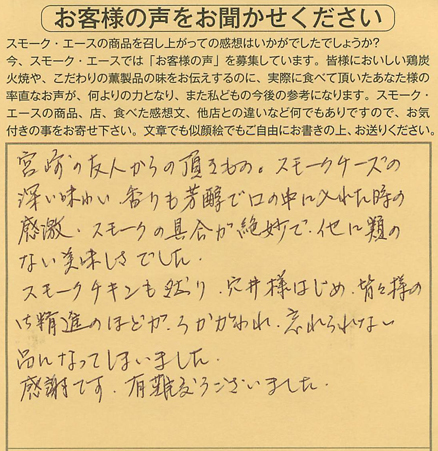 お客様の声をお聞かせください
スモーク・エースの商品を召し上がっての感想はいかがでしたでしょうか?
今、スモーク・エースでは「お客様の声」を募集しています。皆様においしい鶏炭
火焼や、こだわりの薫製品の味をお伝えするのに、実際に食べて頂いたあなた様の
率直なお声が、何よりの力となり、また私どもの今後の参考になります。スモーク・
エースの商品、店、食べた感想文、他店との違いなど何でもありですので、お気
付きの事をお寄せ下さい。文章でも似顔絵でもご自由にお書きの上、お送りください。
宮崎の友人からの頂きもの。スモークチーズの
深い味わい 香りも芳醇で口の中に入れた時の
感激、スモークの具合が絶妙で、他に類の
ない美味しさでした。
スモークチキンも然り、穴井様はじめ、皆々様の
ご精進のほどが、うかがわれ、忘れられない
品になってしまいました。
感謝です。有難うございました。